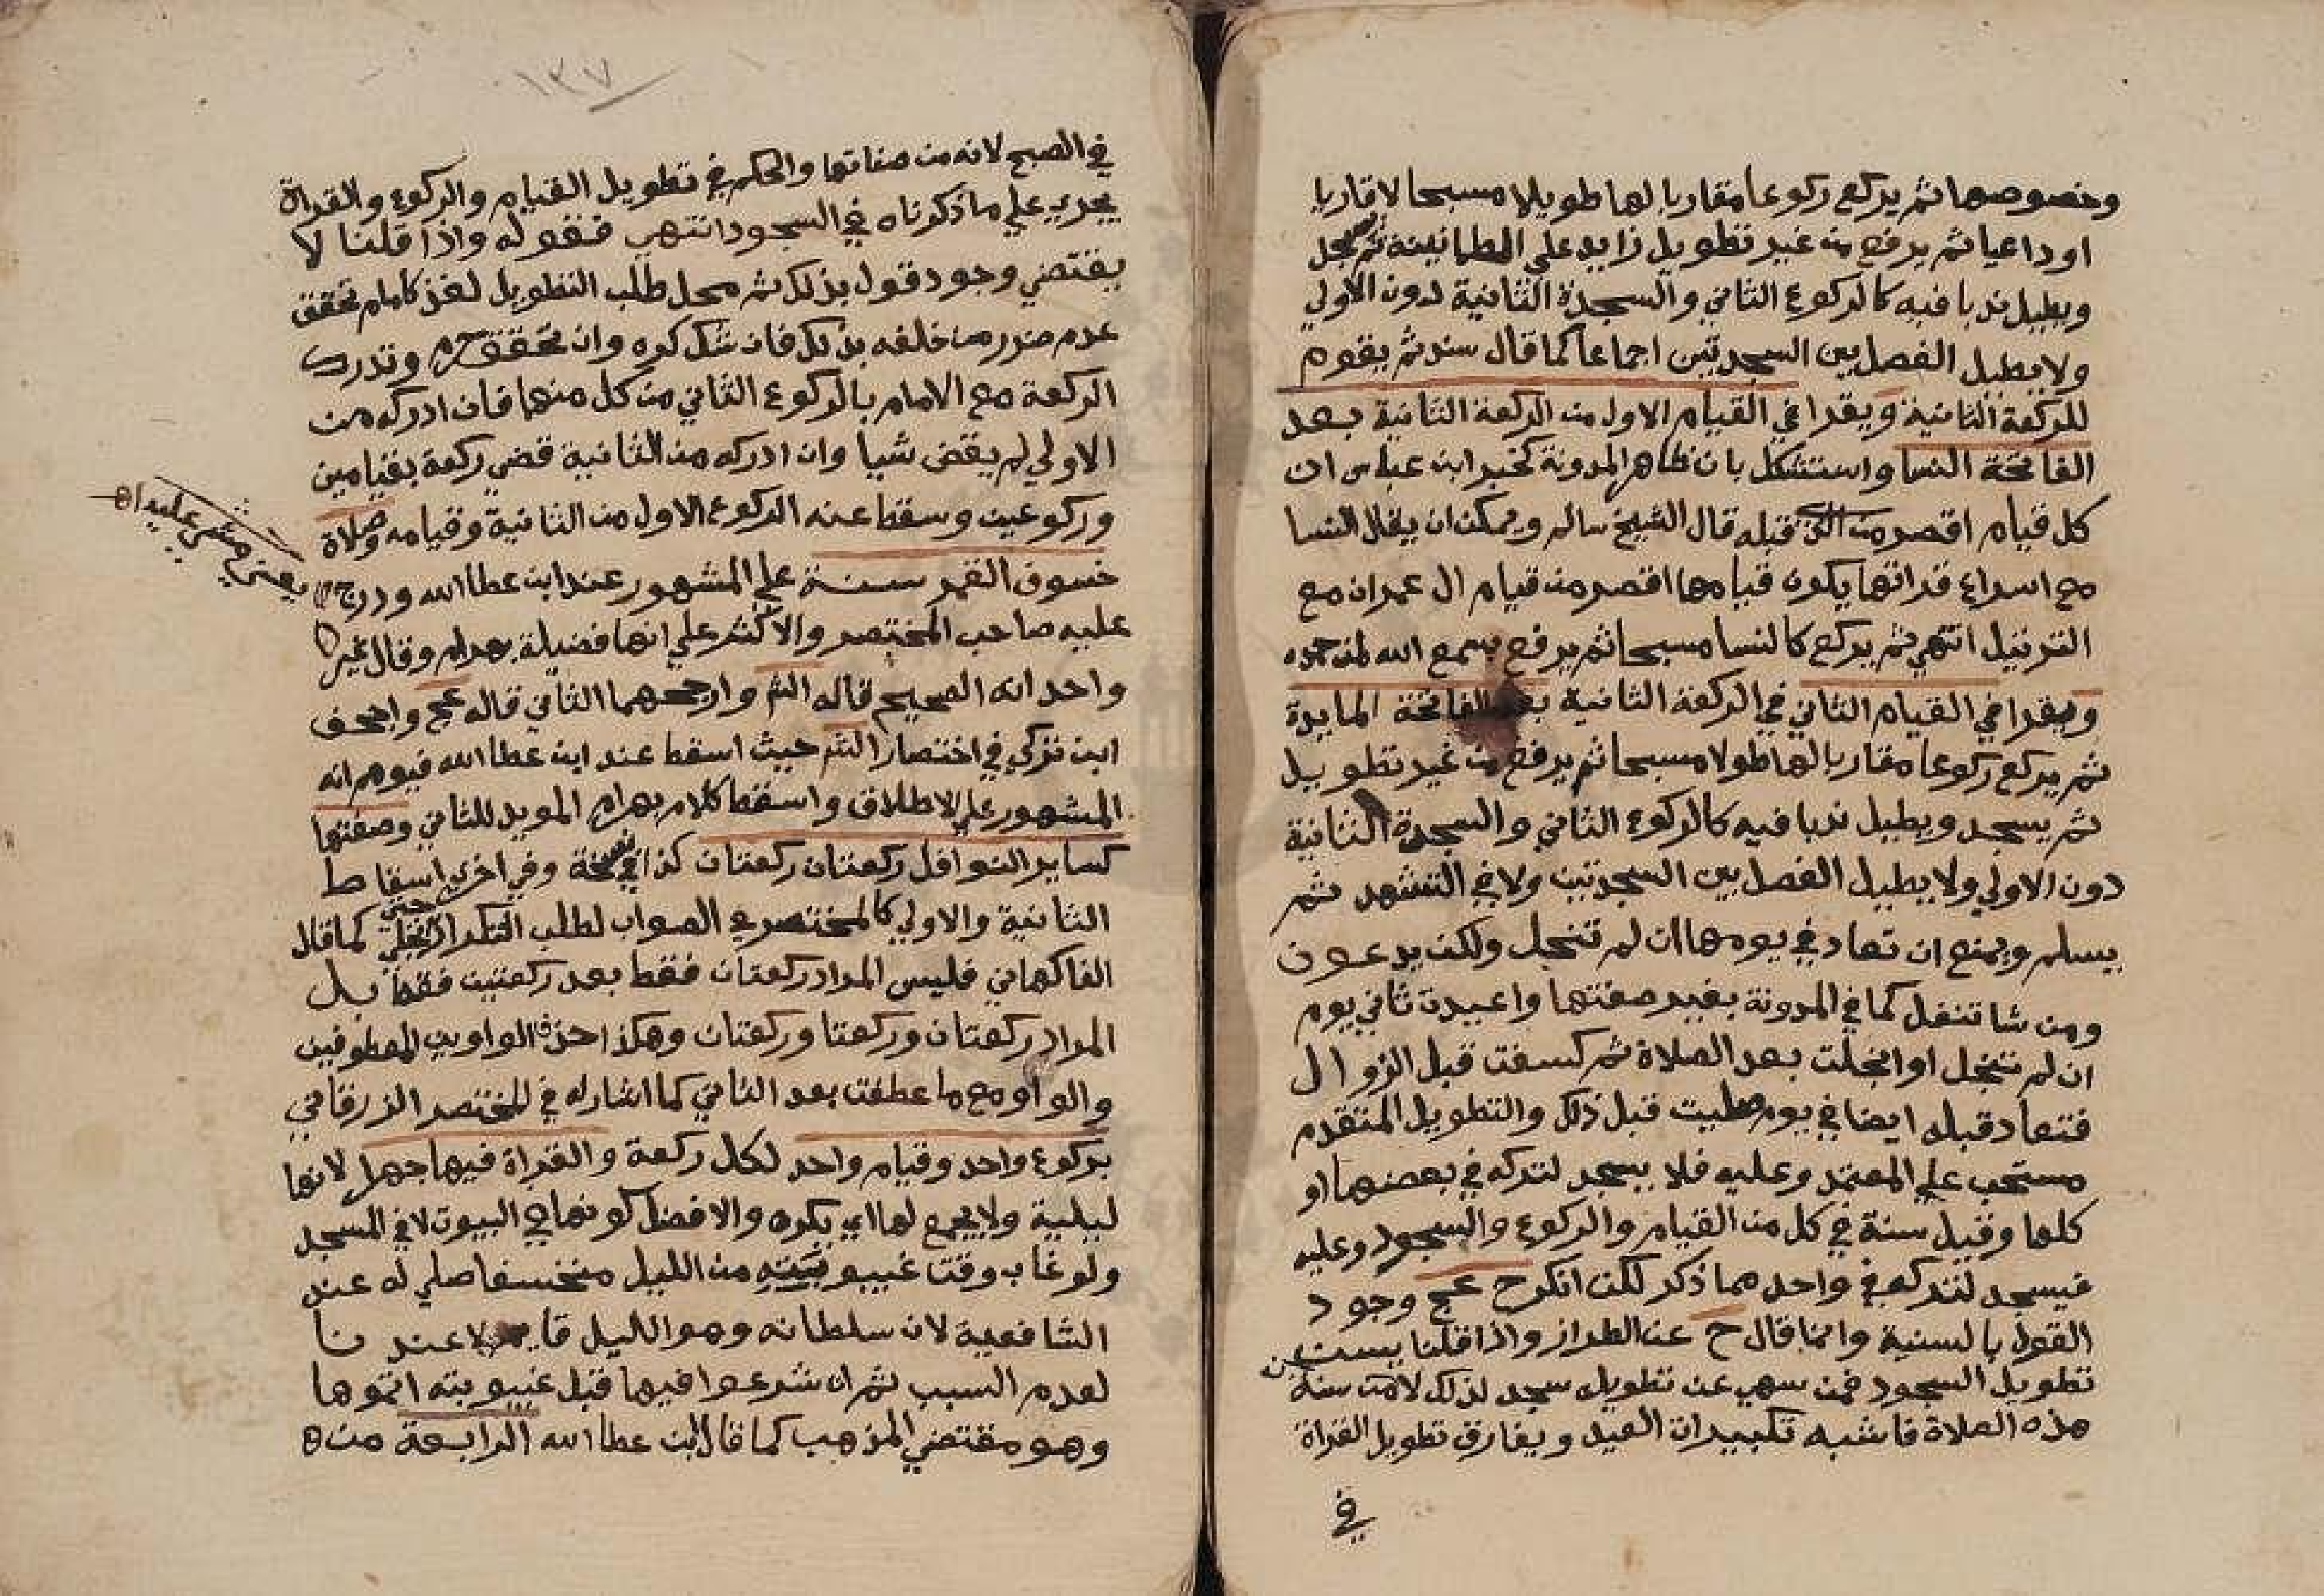 وخصوصها ثم يركع ركوعا مقاربا لها طويلا مسبحا لا قاريا
او داعيا ثم يرفع من غير تطويل زايد علي الطمانينة ثم يسجد
ويطيل ندبا فيه كالركوع الثاني والسجدة الثانية لدون الاولي
ولا يطيل الفصل بين السجدتين اجماعا كما قال سند ثم يقوم
للركعة الثانية ويقرا في القيام الاول من الركعة الثانية بعد
الفاتحة النسا واستشكل بان ظاهر المدونة كخبر ابن عباس ان
كل قيام اقصر من الذي قبله قال الشيخ سالم ويمكن ان يقال النسا
مع اسراع قراتها يكون قيامها اقصر من قيام ال عمران مع
الترتيل انتهي ثم يركع كالنسا مسبحا ثم يرفع بسمع الله لمن حمده
ويقرا في القيام الثاني في الركعة الثانية بعد الفاتحة المايدة
ثم يركع ركوعا مقاربا لها طولا مسبحا ثم يرفع من غير تطويل
ثم يسجد ويطيل ندبا فيه كالركوع الثاني والسجدة الثانية
دون الاولي ولا يطيل الفصل بين السجدتين ولا في التشهد ثم
يسلم ويمنع ان تعاد في يومها ان لم تنجل ولكن يدعون
ومن شا تنفل كما في المدونة بغير صفتها واعيدت ثاني يوم
ان لم تنجل او انجلت بعد الصلاة ثم كسفت قبل الزوال
فتعاد قبله ايضا في يوم صليت قبل ذلك والتطويل المتقدم
مستحب علي المعتمد وعليه فلا يسجد لتركه في بعضها او
كلها وقيل سنة في كل من القيام والركوع والسجود وعليه
فيسجد لتركه في واحد مما ذكر لكن انكر ح عج وجود
القول بالسنية وانما قال ح عن الطراز واذا قلنا يستن
تطويل السجود فمن سهي عن تطويله سجد لذلك لانه من سنة
هذه الصلاة فاشبه تكبيرات العيد ويفارق تطويل القراة
في
١٣٧
في الصبح لانه من صفاتها والحكم في تطويل القيام والركوع والقراة
يجري علي ما ذكرناه في السجود انتهي فقوله واذا قلنا لا
يقتضي وجود قول بذلك ثم محل طلب التطويل لفذ كامام تحقق
عدم ضرر من خلفه بذلك فان شك كره وان تحقق حرم وتدرك
الركعة مع الامام بالركوع الثاني من كل منهما فان ادركه من
الاولي لم يقض شيا وان ادركه من الثانية قضي ركعة بقيامين
وركوعين وسقط عنه الركوع الاول من الثانية وقيامه وصلاة
خسوف القمر سنة علي المشهور عند ابن عطا الله ودرج
يعني مشي عليه اه
عليه صاحب المختصر والاكثر علي انها فضيلة بهرام وقال غير
واحد انه الصحيح قاله الشم وارجحهما الثاني قاله عج واجحف
ابن تركي في اختصار الشم حيث اسقط عند ابن عطا الله فيوهم انه
المشهور علي الاطلاق واسقط كلام بهرام المويد للثاني وصفتها
كساير النوافل ركعتان ركعتان كذا في نسخة وفي اخري اسقاط
الثانية والاولي كالمختصر هي الصواب لطلب التكرار حتي ينجلي كما قال
الفاكهاني فليس المراد ركعتان فقط بعد ركعتين فقط بل
المراد ركعتان وركعتا وركعتان وهكذا حذف الواوين المعطوفين
والواو مع ما عطفت بعد الثاني كما اشار له في المختصر الزرقاني
بركوع واحد وقيام واحد لكل ركعة والقراة فيها جهرا لانها
ليلية ولا يجمع لها اي يكره والافضل كونها في البيوت لا في المسجد
ولو غاب وقت غيبوبته من الليل منخسفا صلي له عند
الشافعية لان سلطانه وهو الليل قايم لا عندنا
لعدم السبب ثم ان شرعوا فيها قبل غيبوبته اتموها
وهو مقتضي المذهب كما قال ابن عطا الله الرابعة منه